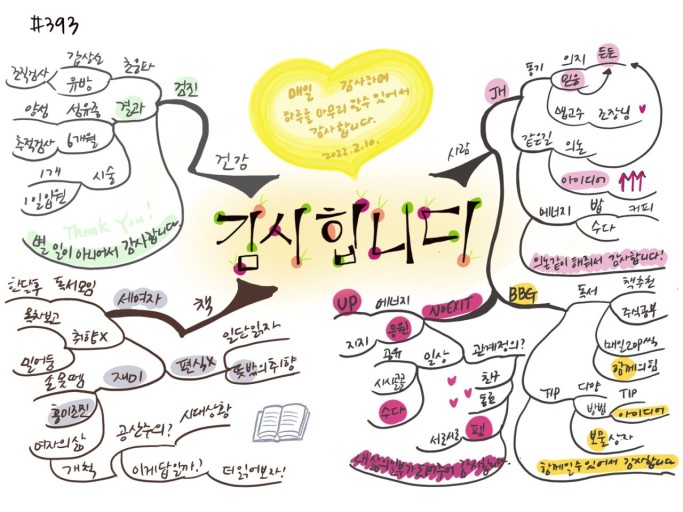 #393
매일 감사하며
하루를 마무리 할수 있어서
감사합니다.
2022.2.10.
감사합니다
건강
검진
초음파
갑상선
유방
조직검사
결과
섬유종
양성
6개월
추적검사
시술
1개
1일입원
Thank You!
별 일이 아니어서 감사합니다
사람
JH
동기
의지
든든
믿음
맹고수
조장님
같은길
의논
아이디어
에너지
밥
커피
수다
의논같이 해줘서 감사합니다!
BBG
독서
책추천
주식공부
매일20p씩
함께의 힘
TIP
다양
방법
TIP
아이디어
보물상자
함께일수 있어서 감사합니다
NoEXIT
에너지
UP
응원
지지
일상
공유
시시콜콜
수다
관계정의?
친구
동료
팬
서로서로
책
세여자
독서모임
한달후
취향X
목차보고
재미
흥미로진
여자의 삶
개척
편식X
일단읽자
뜻밖의 취향
공산주의?
시대상황
이게답일까?
더읽어보자!